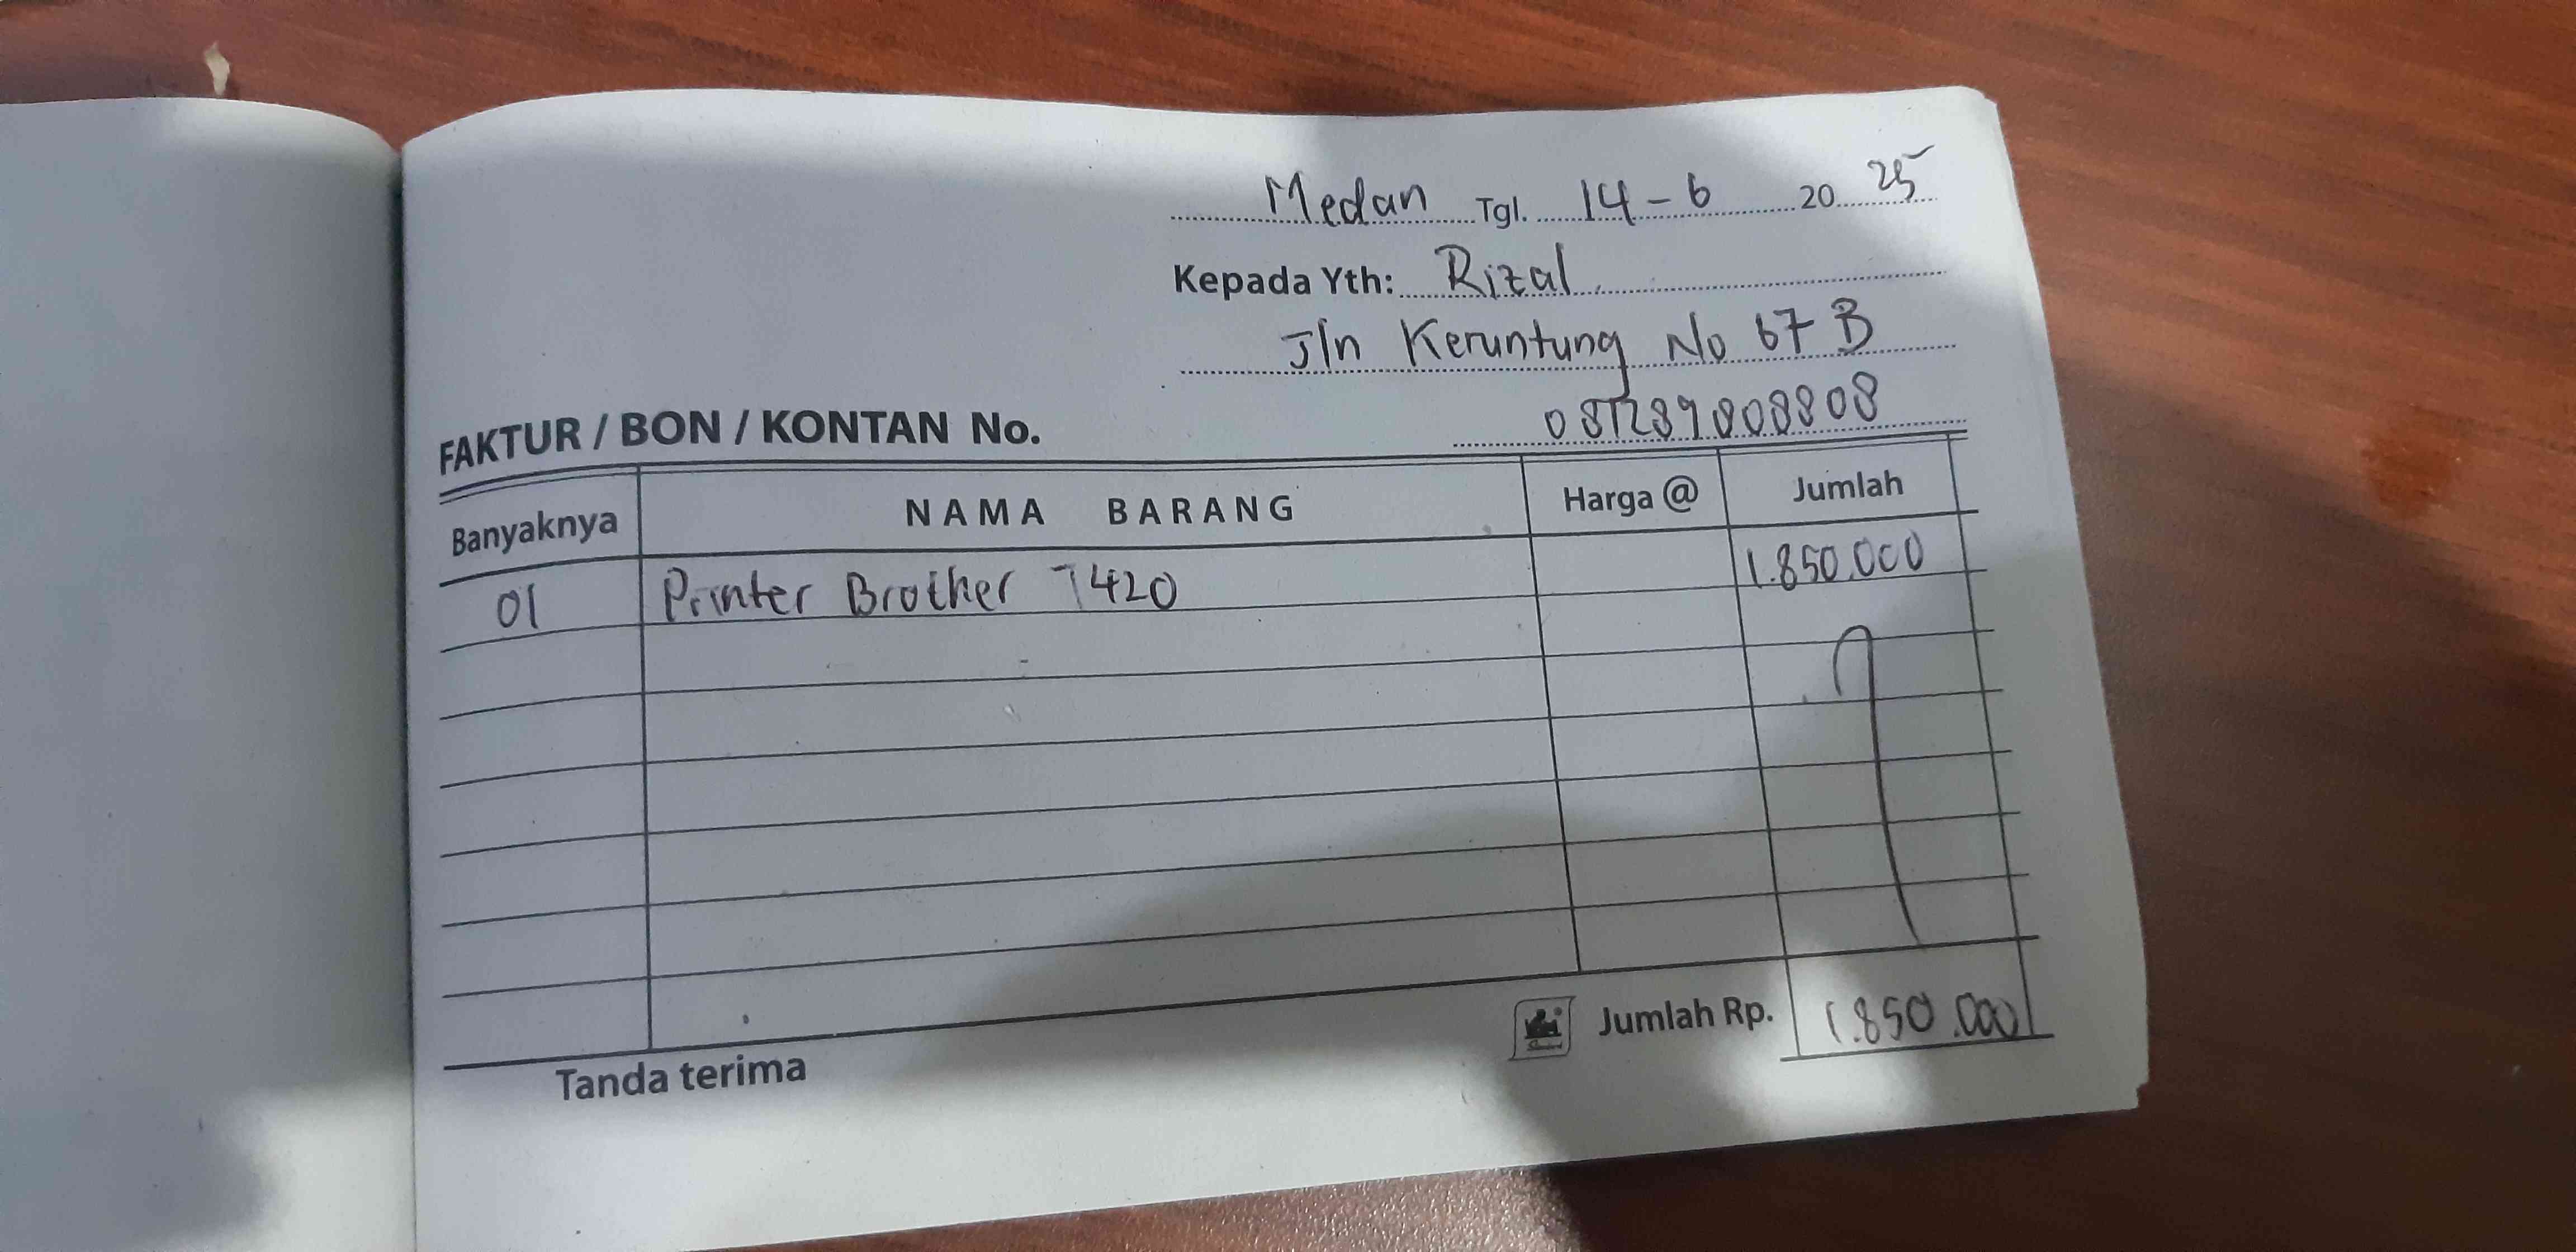 Medan Tgl. 14-6 20 25
Kepada Yth: Rizal
Jln Keruntung No 67 B
081289808808
FAKTUR / BON / KONTAN No.
Banyaknya NAMA BARANG Harga @ Jumlah
01 Printer Brother T420 1.850.000
Jumlah Rp. 1.850.000
Tanda terima